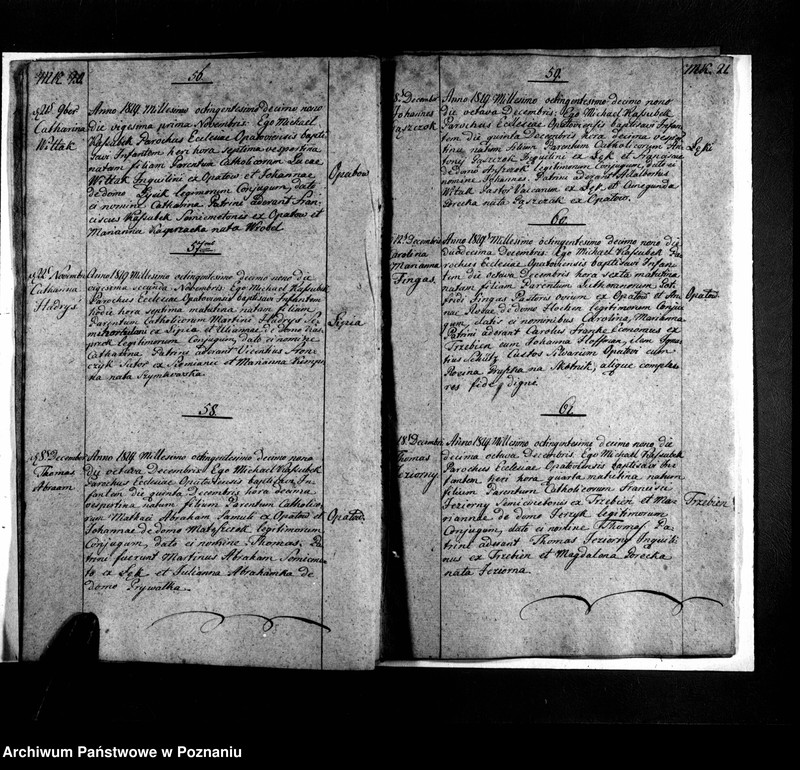 56
21 9ber
Catharina
Witłak
Anno 1819 Millesimo octingentesimo decimo nono
die vigesima prima Novembris. Ego Michael
Kaszubek Parochus Ecclesiae Opatoviensis bapti
savi Infantem heri hora septima vespertina
natam filiam Parentum Catholicorum Lucae
Witłak Inquilini ex Opatow et Johannae
de domo legitimorum Conjugum, dato
ei nomine Catharina Patrini aderant Fran-
ciscus Kaszubek Semicmetonis ex Opatow et
Marianna Kasprzacka nata Wrobel
Opatow
57
22 Novembr
Catharina
Hadryś
Anno 1819 Millesimo octingentesimo decimo nono die
vigesima secunda Novembris. Ego Michael Kaszubek
Parochus Ecclesiae Opatoviensis baptisavi Infantem
hodie hora septima matutina natam filiam
Parentum Catholicorum Martini Hadryś
ex Sipica et Julianae de domo
legitimorum Conjugum, dato ei nomine
Catharina Patrini aderant Vicentius
Sutor ex Siemianic et Marianna
nata Szymkowska.
58.
8 December
Thomas
Abraam
Anno 1819 Millesimo octingentesimo decimo nono
die octava Decembris Ego Michael Kaszubek
Parochus Ecclesiae Opatoviensis baptisavi In-
fantem die quinta Decembris hora decima
vespertina natum filium Parentum Catholico-
rum Mathaei Abraham famuli ex Opatow et
Johannae de domo Matysczok legitimorum
Conjugum, dato ei nomine Thomas. Pa-
trini fuerunt Martinus Abraham Semicme-
to ex Sęk et Julianna Abrahamka de
domo Prywalka.
Opatow
59.
8 Decembr
Johannes
Paszczok
Anno 1819 Millesimo octingentesimo decimo nono
die octava Decembris Ego Michael Kaszubek
Parochus Ecclesiae Opatoviensis baptisavi Infan-
tem die quinta Decembris hora decima vesper
tina natum filium Parentum Catholicorum An-
tonij Paszczok Inquilini ex Sęk et Franciscae
de domo legitimorum Conjugum, dato ei
nomine Johannes. Patrini aderant Adalbertus
Pastor Vaccarum ex Sęk et Cunegunda
nata Paszczak ex Opatow.
60
12 Decembris
Carolina
Marianna
Fingas.
Anno 1819 Millesimo octingentesimo decimo nono die
duodecima Decembris. Ego Michael Kaszubek Pa-
rochus Ecclesiae Opatoviensis baptisavi Infan-
tem die octava Decembris hora sexta matutina
natam filiam Parentum Lutheranorum Got-
fridi Fingas Pastoris ovium ex Opatow et An-
nae de domo Hocken legitimorum Conju-
gum, datis ei nominibus Carolina, Marianna
Patrini aderant Carolus Franke Economus ex
Trzebien cum Johanna Hoffman, cum Igna-
tius Schültz Custos Silvarum Opatow cum
Rosina na Skotnik, alijque complu-
res fide digni.
Opatow
61.
18 Decembri
Thomas
Jeziorny
Anno 1819 Millesimo octingentesimo decimo nono die
decima octava Decembris. Ego Michael Kaszubek
Parochus Ecclesiae Opatoviensis baptisavi In-
fantem heri hora quarta matutina natum
filium Parentum Catholicorum Francisci
Jeziorny Semicmetonis ex Trzebien et Mar-
iannae de domo Jerzyk legitimorum
Conjugum, dato ei nomine Thomas. Pa-
trini aderant Thomas Jeziorny Inquili-
nus ex Trzebin et Magdalena
nata Jeziorna.
Trzebien
Archiwum Państwowe w Poznaniu